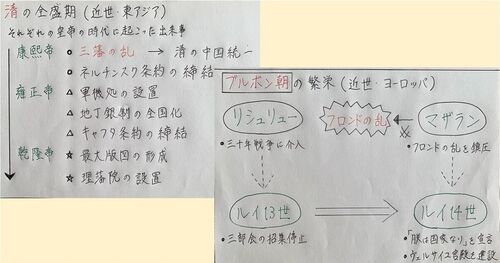 清の全盛期（近世・東アジア）
それぞれの皇帝の時代に起こった出来事
康熙帝 三藩の乱 → 清の中国統一
ネルチンスク条約の締結
雍正帝 △ 軍機処の設置
△ 地丁銀制の全国化
△ キャフタ条約の締結
乾隆帝 ☆ 最大版図の形成
☆ 理藩院の設置
ブルボン朝の繁栄（近世・ヨーロッパ）
リシュリュー フロンドの乱 マザラン
・三十年戦争に介入 ・フロンドの乱を鎮圧
ルイ13世 ルイ14世
・三部会の招集停止 ・「朕は国家なり」を宣言
・ヴェルサイユ宮殿を建設